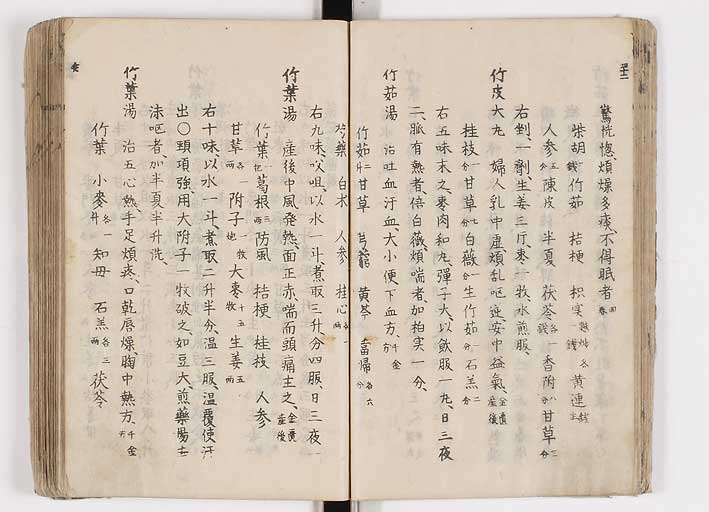 驚恍惚煩燥多痰、不得眠者 回春
柴胡 銭 竹茹 桔梗 枳実 一銭 黄連
人参 五分 陳皮 半夏 茯苓 各一銭 香附 八分 甘草 三分
右剉一劑生姜三斤、枣一枚水煎服、
竹皮大丸 婦人乳中虚、煩乱呕逆、安中益氣、金匱 産後
桂枝 一分 甘草 七分 白薇 一分 生竹茹 二分 石羔 二分
右五味末之、枣肉和丸弾子大、以飲服一丸、日三夜
二、脈有熱者、倍白薇、煩喘者、加柏実一分、
竹茹湯 治吐血汗血、大小便下血方、千金
竹茹 二升 甘草 芎藭 黄芩 當帰 各六分
芍藥 白术 人参 桂心 各一両
右九味、㕮咀以水一斗、煮取三升分四服、日三夜一
竹葉湯 産後中風発熱、面正赤喘而頭痛主之、金匱 産後
竹葉 一把 葛根 三両 防風 桔梗 桂枝 人参
甘草 各一両 附子 一枚炮 大枣 十五枚 生姜 五両
右十味、以水一斗、煮取二升半分温三服、温覆使汗
出〇頸項強用大附子一枚破之、如豆大、煎藥揚去
沫呕者、加半夏半升洗、
竹葉湯 治五心熱手足煩疼、口乾唇燥、胸中熱方、千金方
竹葉 小麥 各一升 知母 石羔 各三両 茯苓